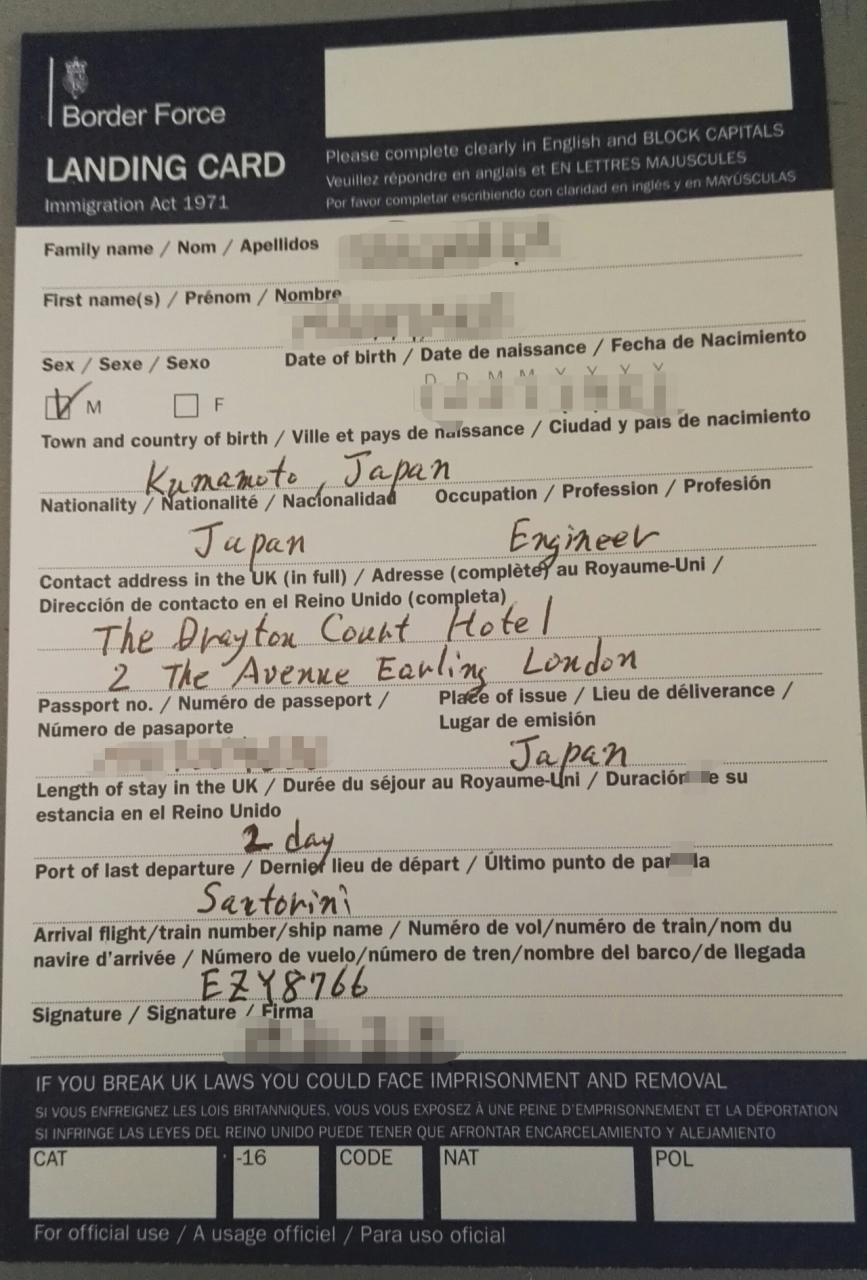 Border Force
LANDING CARD
Immigration Act 1971
Please complete clearly in English and BLOCK CAPITALS
Veuillez répondre en anglais et EN LETTRES MAJUSCULES
Por favor completar escribiendo con claridad en inglés y en MAYÚSCULAS
Family name / Nom / Apellidos
First name(s) / Prénom / Nombre
Sex / Sexe / Sexo
Date of birth / Date de naissance / Fecha de Nacimiento
M F
D D M M Y Y Y Y
Town and country of birth / Ville et pays de naissance / Ciudad y país de nacimiento
Kumamoto, Japan
Nationality / Nationalité / Nacionalidad
Occupation / Profession / Profesión
Japan
Engineer
Contact address in the UK (in full) / Adresse (complète) au Royaume-Uni /
Dirección de contacto en el Reino Unido (completa)
The Drayton Court Hotel
2 The Avenue Earling London
Passport no. / Numéro de passeport /
Número de pasaporte
Place of issue / Lieu de déliverance /
Lugar de emisión
Japan
Length of stay in the UK / Durée du séjour au Royaume-Uni / Duración e su
estancia en el Reino Unido
2 day
Port of last departure / Dernier lieu de départ / Último punto de par la
Sartorini
Arrival flight/train number/ship name / Numéro de vol/numéro de train/nom du
navire d'arrivée / Número de vuelo/número de tren/nombre del barco/de llegada
EZY8766
Signature / Signature / Firma
IF YOU BREAK UK LAWS YOU COULD FACE IMPRISONMENT AND REMOVAL
SI VOUS ENFREIGNEZ LES LOIS BRITANNIQUES, VOUS VOUS EXPOSEZ À UNE PEINE D'EMPRISONNEMENT ET LA DÉPORTATION
SI INFRINGE LAS LEYES DEL REINO UNIDO PUEDE TENER QUE AFRONTAR ENCARCELAMIENTO Y ALEJAMIENTO
CAT -16 CODE NAT POL
For official use / A usage officiel / Para uso oficial